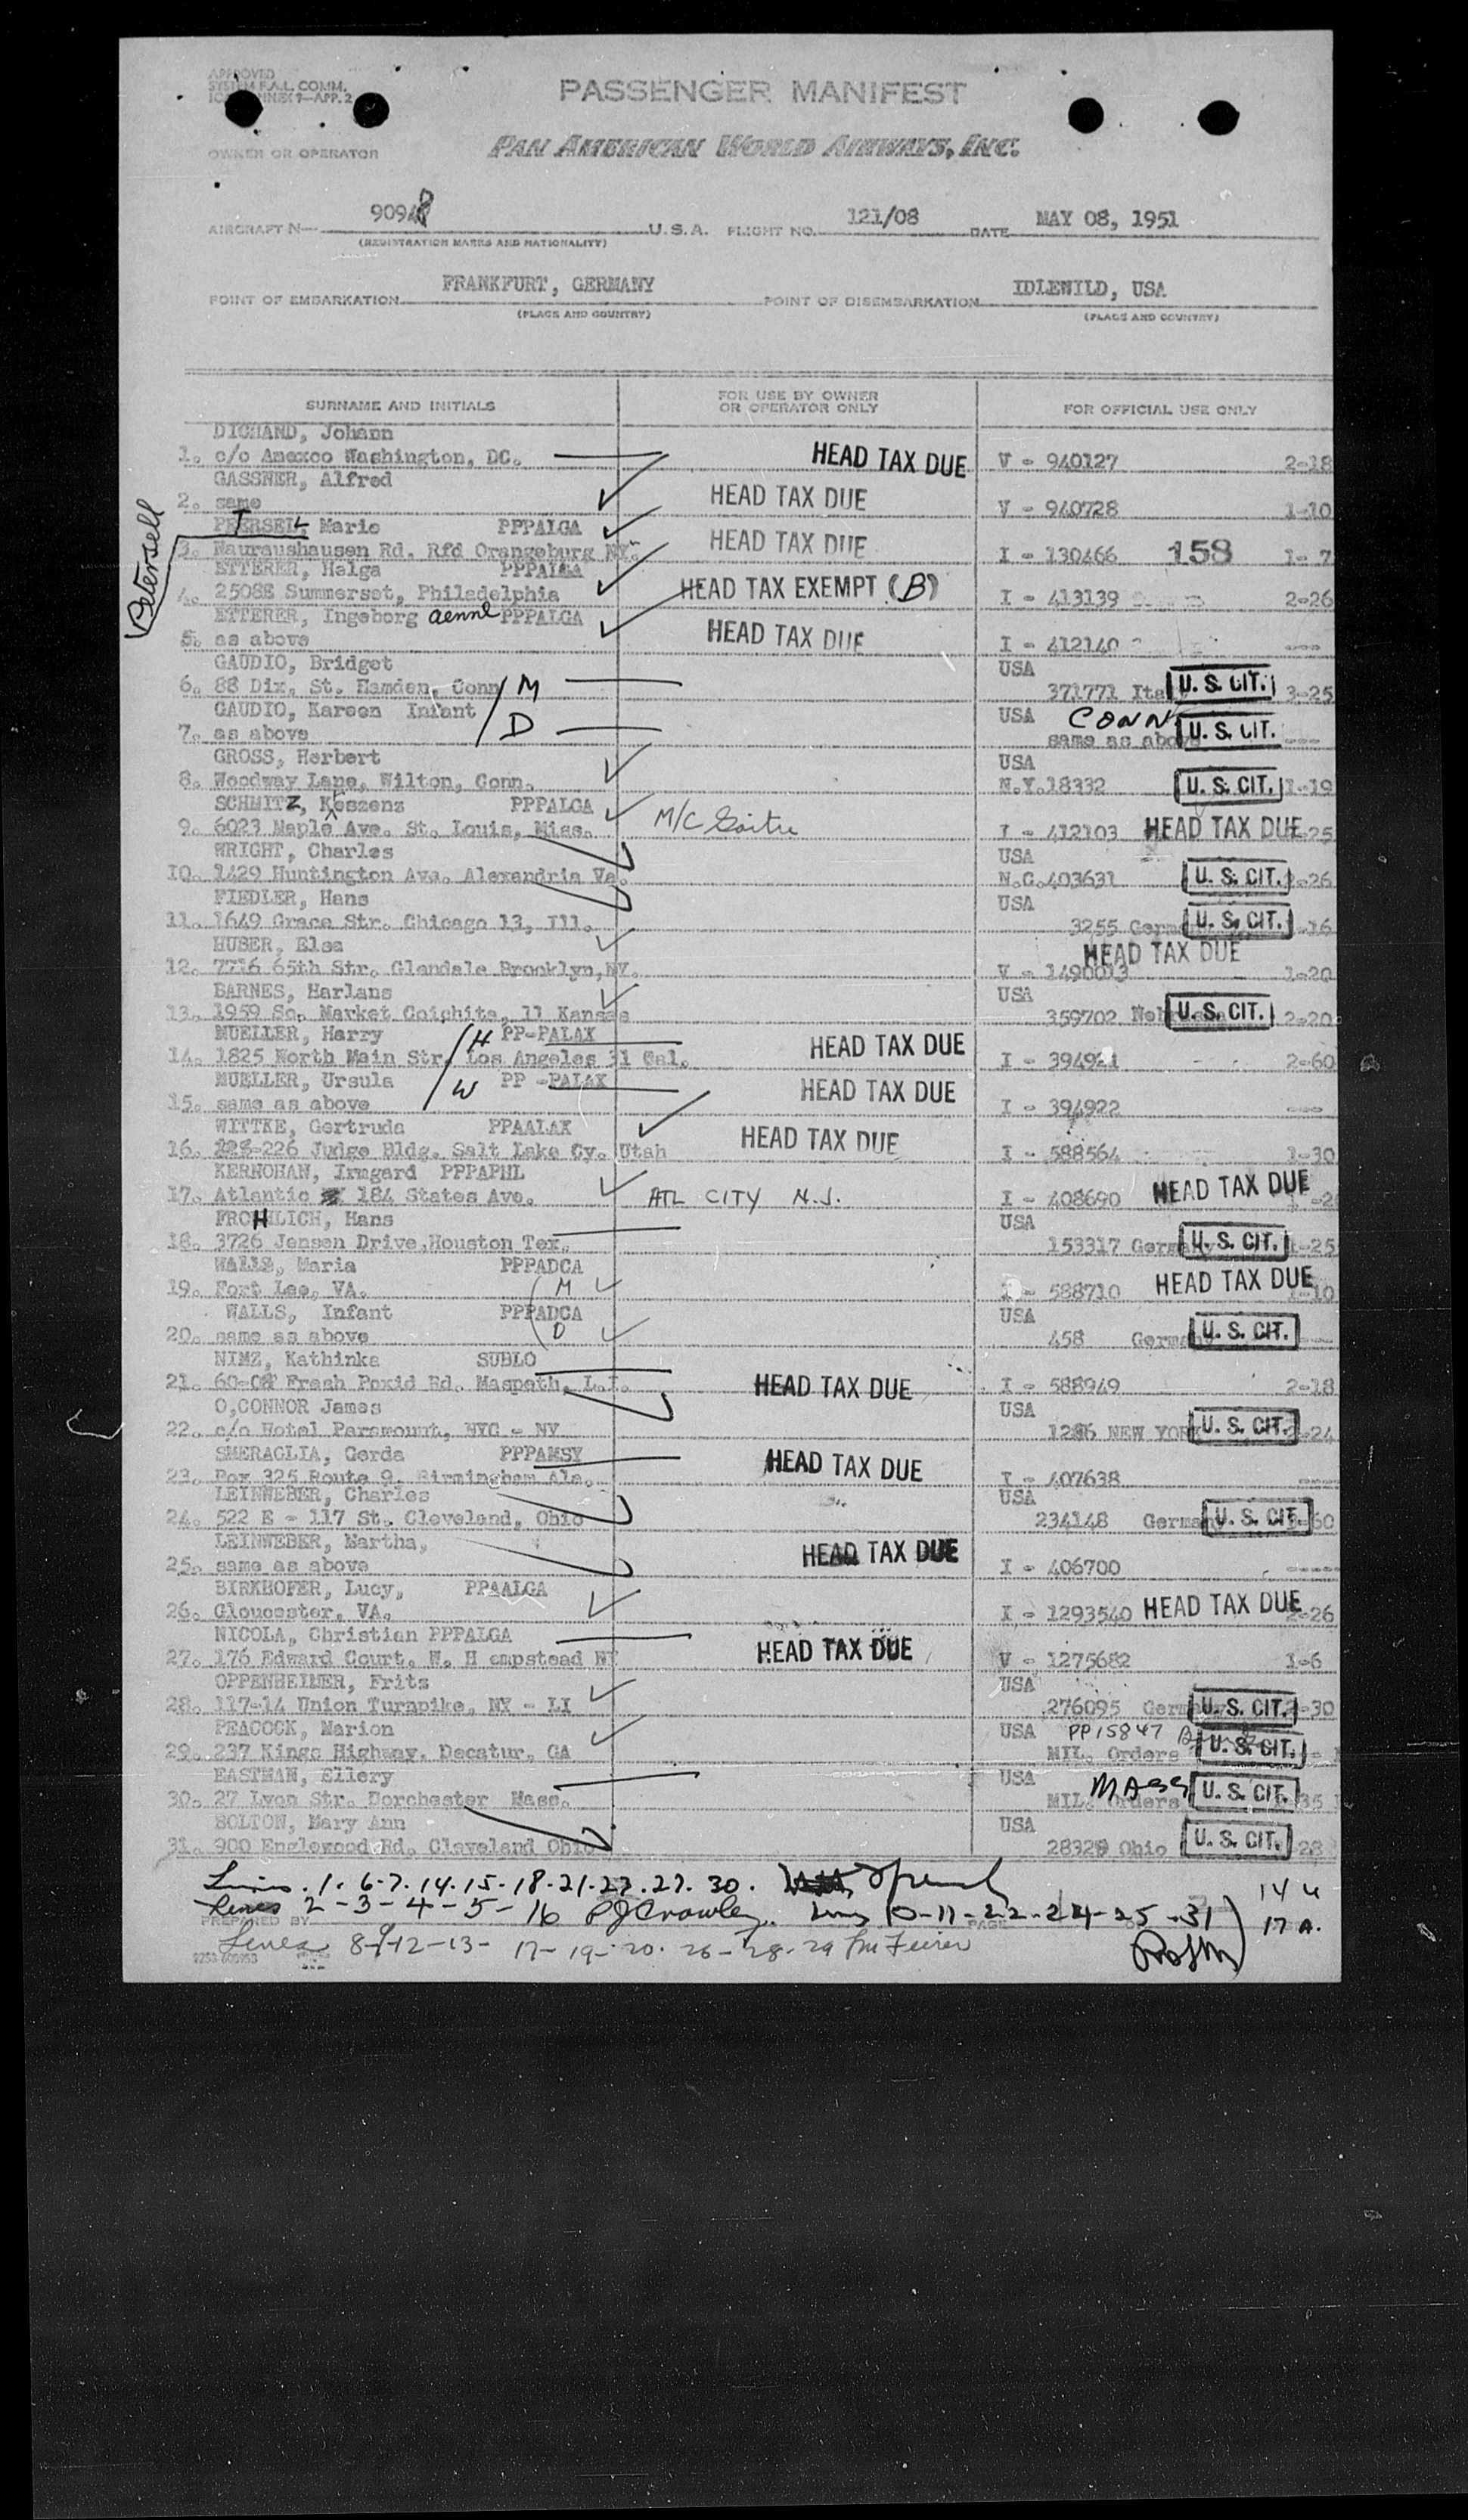 APPROVED
SYSTEM F.A.L. COMM.
ANNEX 9—APP. 2
PASSENGER MANIFEST
OWNER OR OPERATOR PAN AMERICAN WORLD AIRWAYS, INC.
AIRCRAFT N— 9094 U.S.A. FLIGHT NO. 121/08 DATE MAY 08, 1951
(REGISTRATION MARKS AND NATIONALITY)
POINT OF EMBARKATION FRANKFURT, GERMANY POINT OF DISEMBARKATION IDLEWILD, USA
(PLACE AND COUNTRY) (PLACE AND COUNTRY)
SURNAME AND INITIALS FOR USE BY OWNER OR OPERATOR ONLY FOR OFFICIAL USE ONLY
DICHAND, Johann
1. c/o Amexco Washington, DC. HEAD TAX DUE V - 940127 2-18
GASSNER, Alfred
2. same HEAD TAX DUE V - 940728 1-10
Petersell
Marie PPPALGA
3. Nauraushausen Rd. Rfd Orangeburg NY. HEAD TAX DUE I - 130466 158 1- 7
ETTERER, Helga PPPALGA
4. 2508E Summerset, Philadelphia HEAD TAX EXEMPT (B) I - 413139 2-26
ETTERER, Ingeborg aenne PPPALGA
5. as above HEAD TAX DUE I - 412140 ---
GAUDIO, Bridget USA
6. 88 Dix, St. Hamden, Conn M 371771 U. S. CIT. 3-25
GAUDIO, Kareen Infant USA CONN
7. as above D same as above U. S. CIT. ---
GROSS, Herbert USA
8. Woodway Lane, Wilton, Conn. N.Y.18332 U. S. CIT. 1-19
SCHMITZ, PPPALGA
9. 6023 Maple Ave. St. Louis, Miss. M/C Goitre I - 412103 HEAD TAX DUE 25
WRIGHT, Charles USA
10. 1429 Huntington Ave. Alexandria Va. N.C.403631 U. S. CIT. 2-26
FIEDLER, Hans USA
11. 1649 Grace Str. Chicago 13, Ill. 3255 U. S. CIT. -16
HUBER, Elsa HEAD TAX DUE
12. 7716 65th Str. Glendale Brooklyn, NY. V - 1490013 1-20
BARNES, Harlans USA
13. 1959 So. Market Coichita, 11 Kansas 359702 U. S. CIT. 2-20
MUELLER, Harry H PP-PALAX
14. 1825 North Main Str. Los Angeles 31 Cal. HEAD TAX DUE I - 394921 2-60
MUELLER, Ursula W PP -PALAX
15. same as above HEAD TAX DUE I - 394922 ---
WITTKE, Gertruda PPAALAX
16. 226 Judge Bldg. Salt Lake Cy. Utah HEAD TAX DUE I - 588564 1-30
KERNOHAN, Irmgard PPPAPHL
17. Atlantic 184 States Ave. ATL CITY N.J. I - 408690 HEAD TAX DUE
FROHLICH, Hans USA
18. 3726 Jensen Drive, Houston Tex. 153317 Germany U. S. CIT. 1-25
WALLS, Maria PPPADCA
19. Fort Lee, VA. M I - 588710 HEAD TAX DUE 1-10
WALLS, Infant PPPADCA USA
20. same as above D 458 Germany U. S. CIT. ---
NIMZ, Kathinka SUBLO
21. 60-08 Fresh Poxid Rd. Maspeth, L.I. HEAD TAX DUE I - 588949 2-18
O,CONNOR James USA
22. c/o Hotel Paramount, NYC - NY 1286 NEW YORK U. S. CIT. -24
SMERAGLIA, Gerda PPPAMSY
23. Box 325 Route 9. Birmingham Ala. HEAD TAX DUE I - 407638 ----
LEINWEBER, Charles USA
24. 522 E - 117 St. Cleveland, Ohio 234148 Germany U. S. CIT. -60
LEINWEBER, Martha,
25. same as above HEAD TAX DUE I - 406700 -----
BIRKHOFER, Lucy, PPAALGA
26. Gloucester, VA. I - 1293540 HEAD TAX DUE 2-26
NICOLA, Christian PPPALGA
27. 176 Edward Court, W. H empstead NY HEAD TAX DUE V - 1275682 1-6
OPPENHEIMER, Fritz USA
28. 117-14 Union Turnpike, NY - LI 276095 Germany U. S. CIT. -30
PEACOCK, Marion USA PP15847
29. 237 Kings Highway. Decatur, GA MIL. Orders U. S. CIT.
EASTMAN, Ellery USA MASS
30. 27 Lyon Str. Dorchester Mass. MIL. Orders U. S. CIT. 35
BOLTON, Mary Ann USA
31. 900 Englewood Rd. Cleveland Ohio 28329 Ohio U. S. CIT. 28
Lines . 1 . 6-7. 14. 15. 18. 21. 23. 27. 30.
14 u
Lines 2 - 3 - 4 - 5 - 16 PJ Crowley Lines 10-11-22-24-25-31 17 A.
PREPARED BY PAGE
Lines 8-9-12-13- 17-19-20. 26-28-29